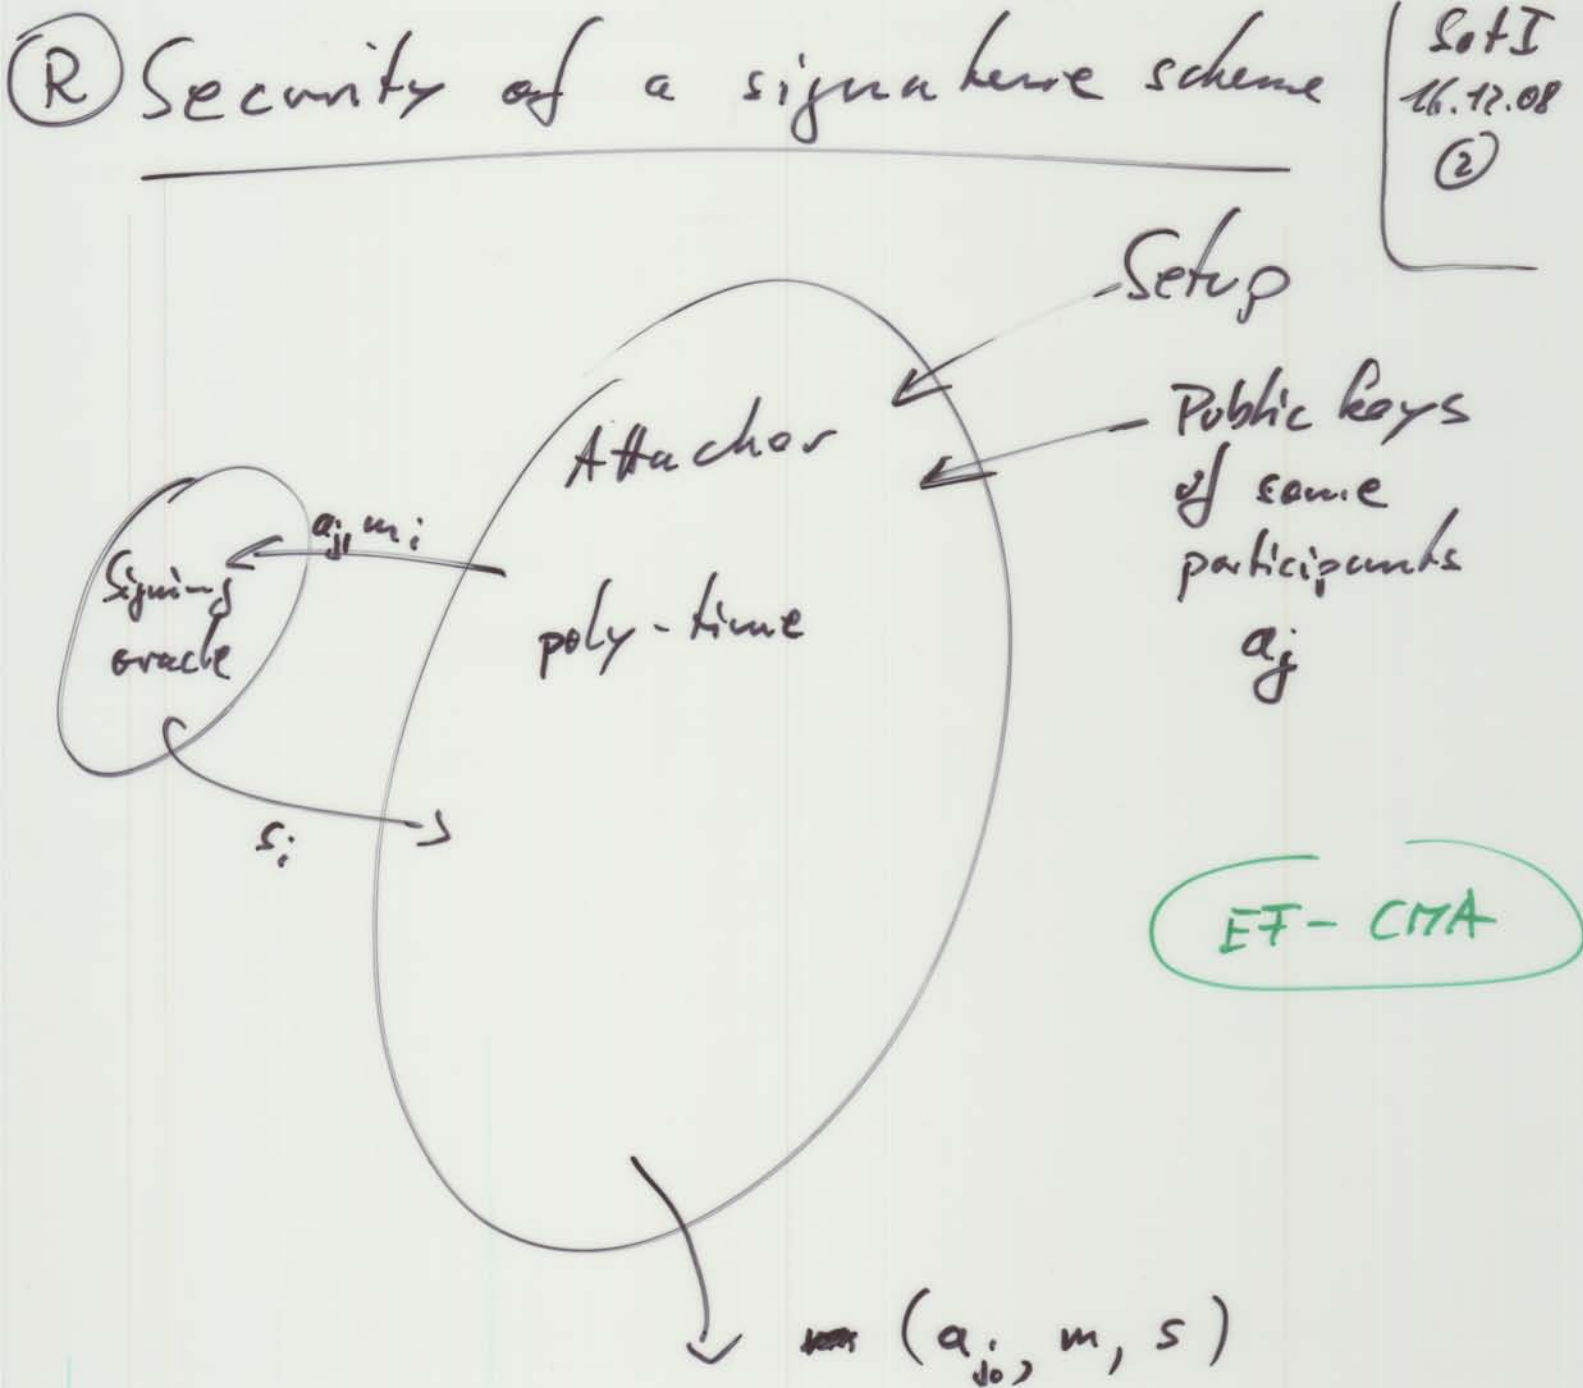 Ⓡ Security of a signature scheme
SotI
16.12.08
②
Setup
Public keys
of some
participants
a_j
Attacker
poly-time
a_j, m_i
Signing
oracle
s_i
EF-CMA
(a_{j_0}, m, s)